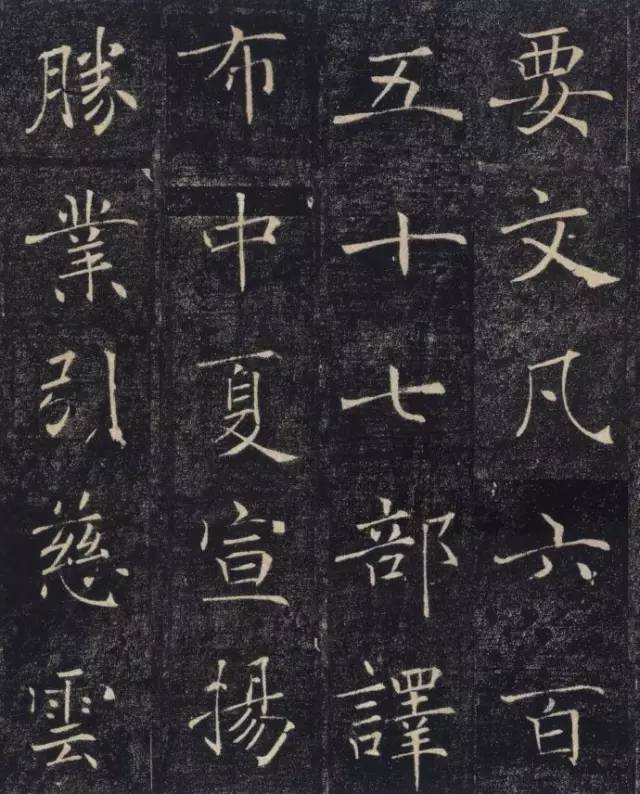 要文凡六百
五十七部譯
布中夏宣揚
勝業引慈雲